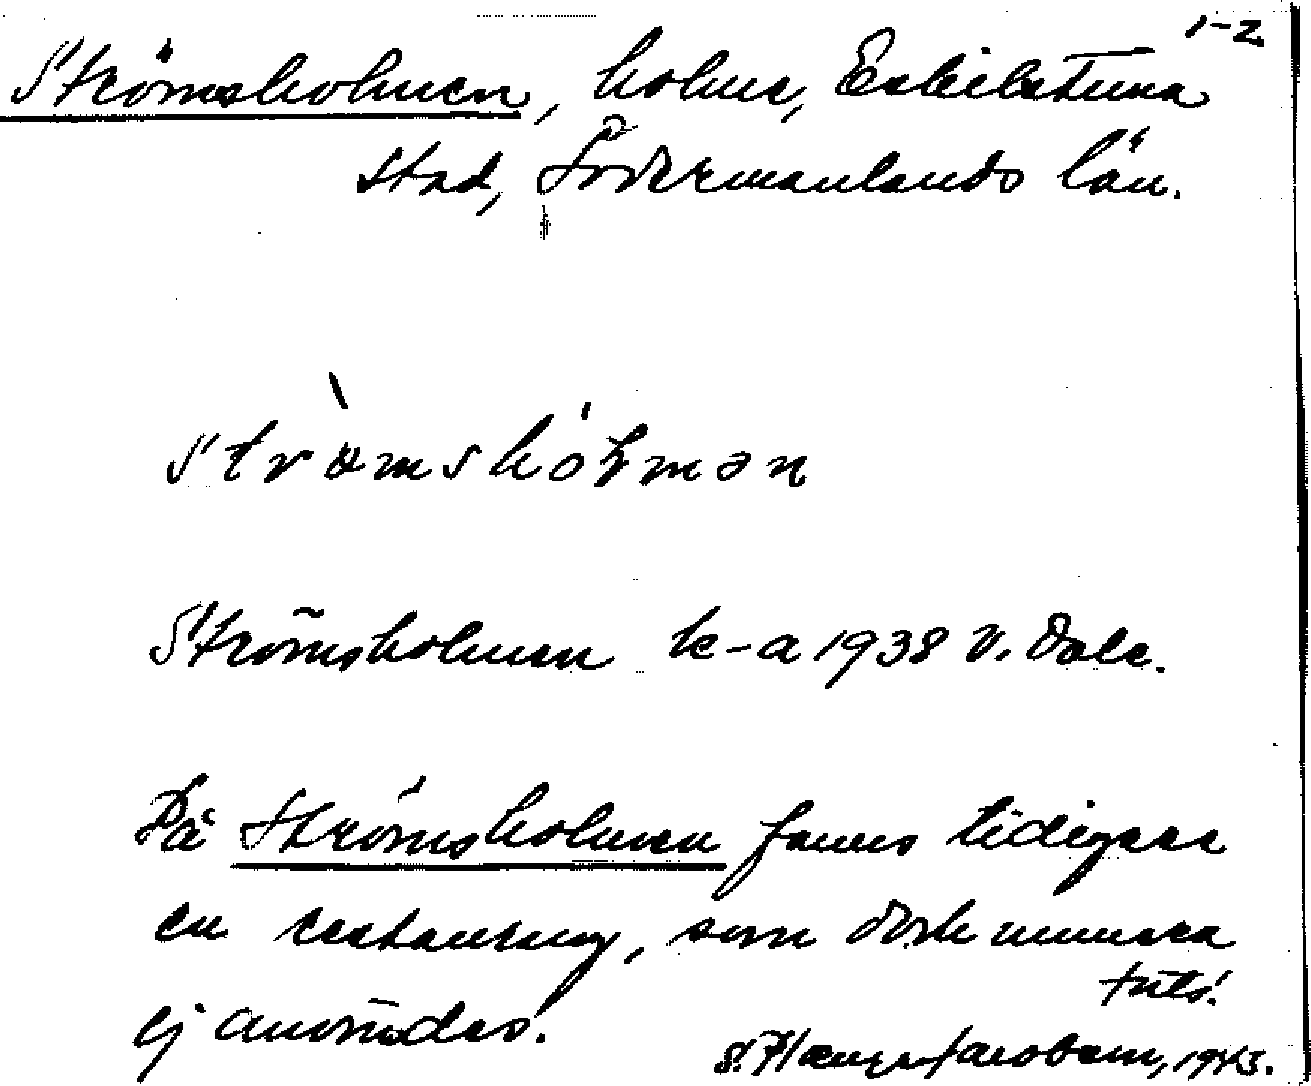 1-2
Strömsholmen, holme, Eskilstuna
stad, Södermanlands län.
strömshólmən
Strömsholmen k-a 1938 v. Dale.
På Strömsholmen fanns tidigare
en restaurang, som dock numera
ej användes.
1943.